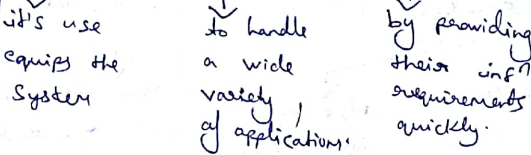 it's use
equips the
System
to handle
a wide
variety
of applications.
by providing
their infn
requirements
quickly.